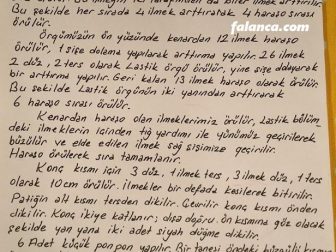 falanca.com
Bu şekilde her sırada 4 ilmek arttırarak 4 haraşo sırası
örülür.
Örgümüzün ön yüzünde kenardan 12 ilmek haraşo
örülür, 1 şişe dolama yapılarak arttırma yapılır. 26 ilmek
2 düz, 2 ters olarak Lastik örgü örülür, yine şişe dolayarak
bir arttırma yapılır. Geri kalan 13 ilmek haraşo olarak örülür.
Bu şekilde Lastik örgünün iki yanından arttırarak
6 haraşo sırası örülür.
Kenardan haraşo olan ilmeklerimiz örülür, Lastik bölüm
deki ilmeklerin içinden tığ yardımı ile yünümüz geçirilerek
büzülür ve elde edilen ilmek sağ şişimize geçirilir.
Haraşo örülerek sıra tamamlanır.
Konç kısmı için 3 düz, 1 ilmek ters, 3 ilmek düz, 1 ters
olarak 10 cm örülür. ilmekler bir defada kesilerek bitirilir.
Patiğin alt kısmı tersden dikilir. Çevrilir konç kısmı önden
dikilir. Konç ikiye katlanır; dışa doğru. Ön kısmına göz olacak
şekilde yan yana iki adet siyah düğme dikilir.
6 Adet küçük pon pon yapılır. Bir tanesi öndeki büzgülü kısmı